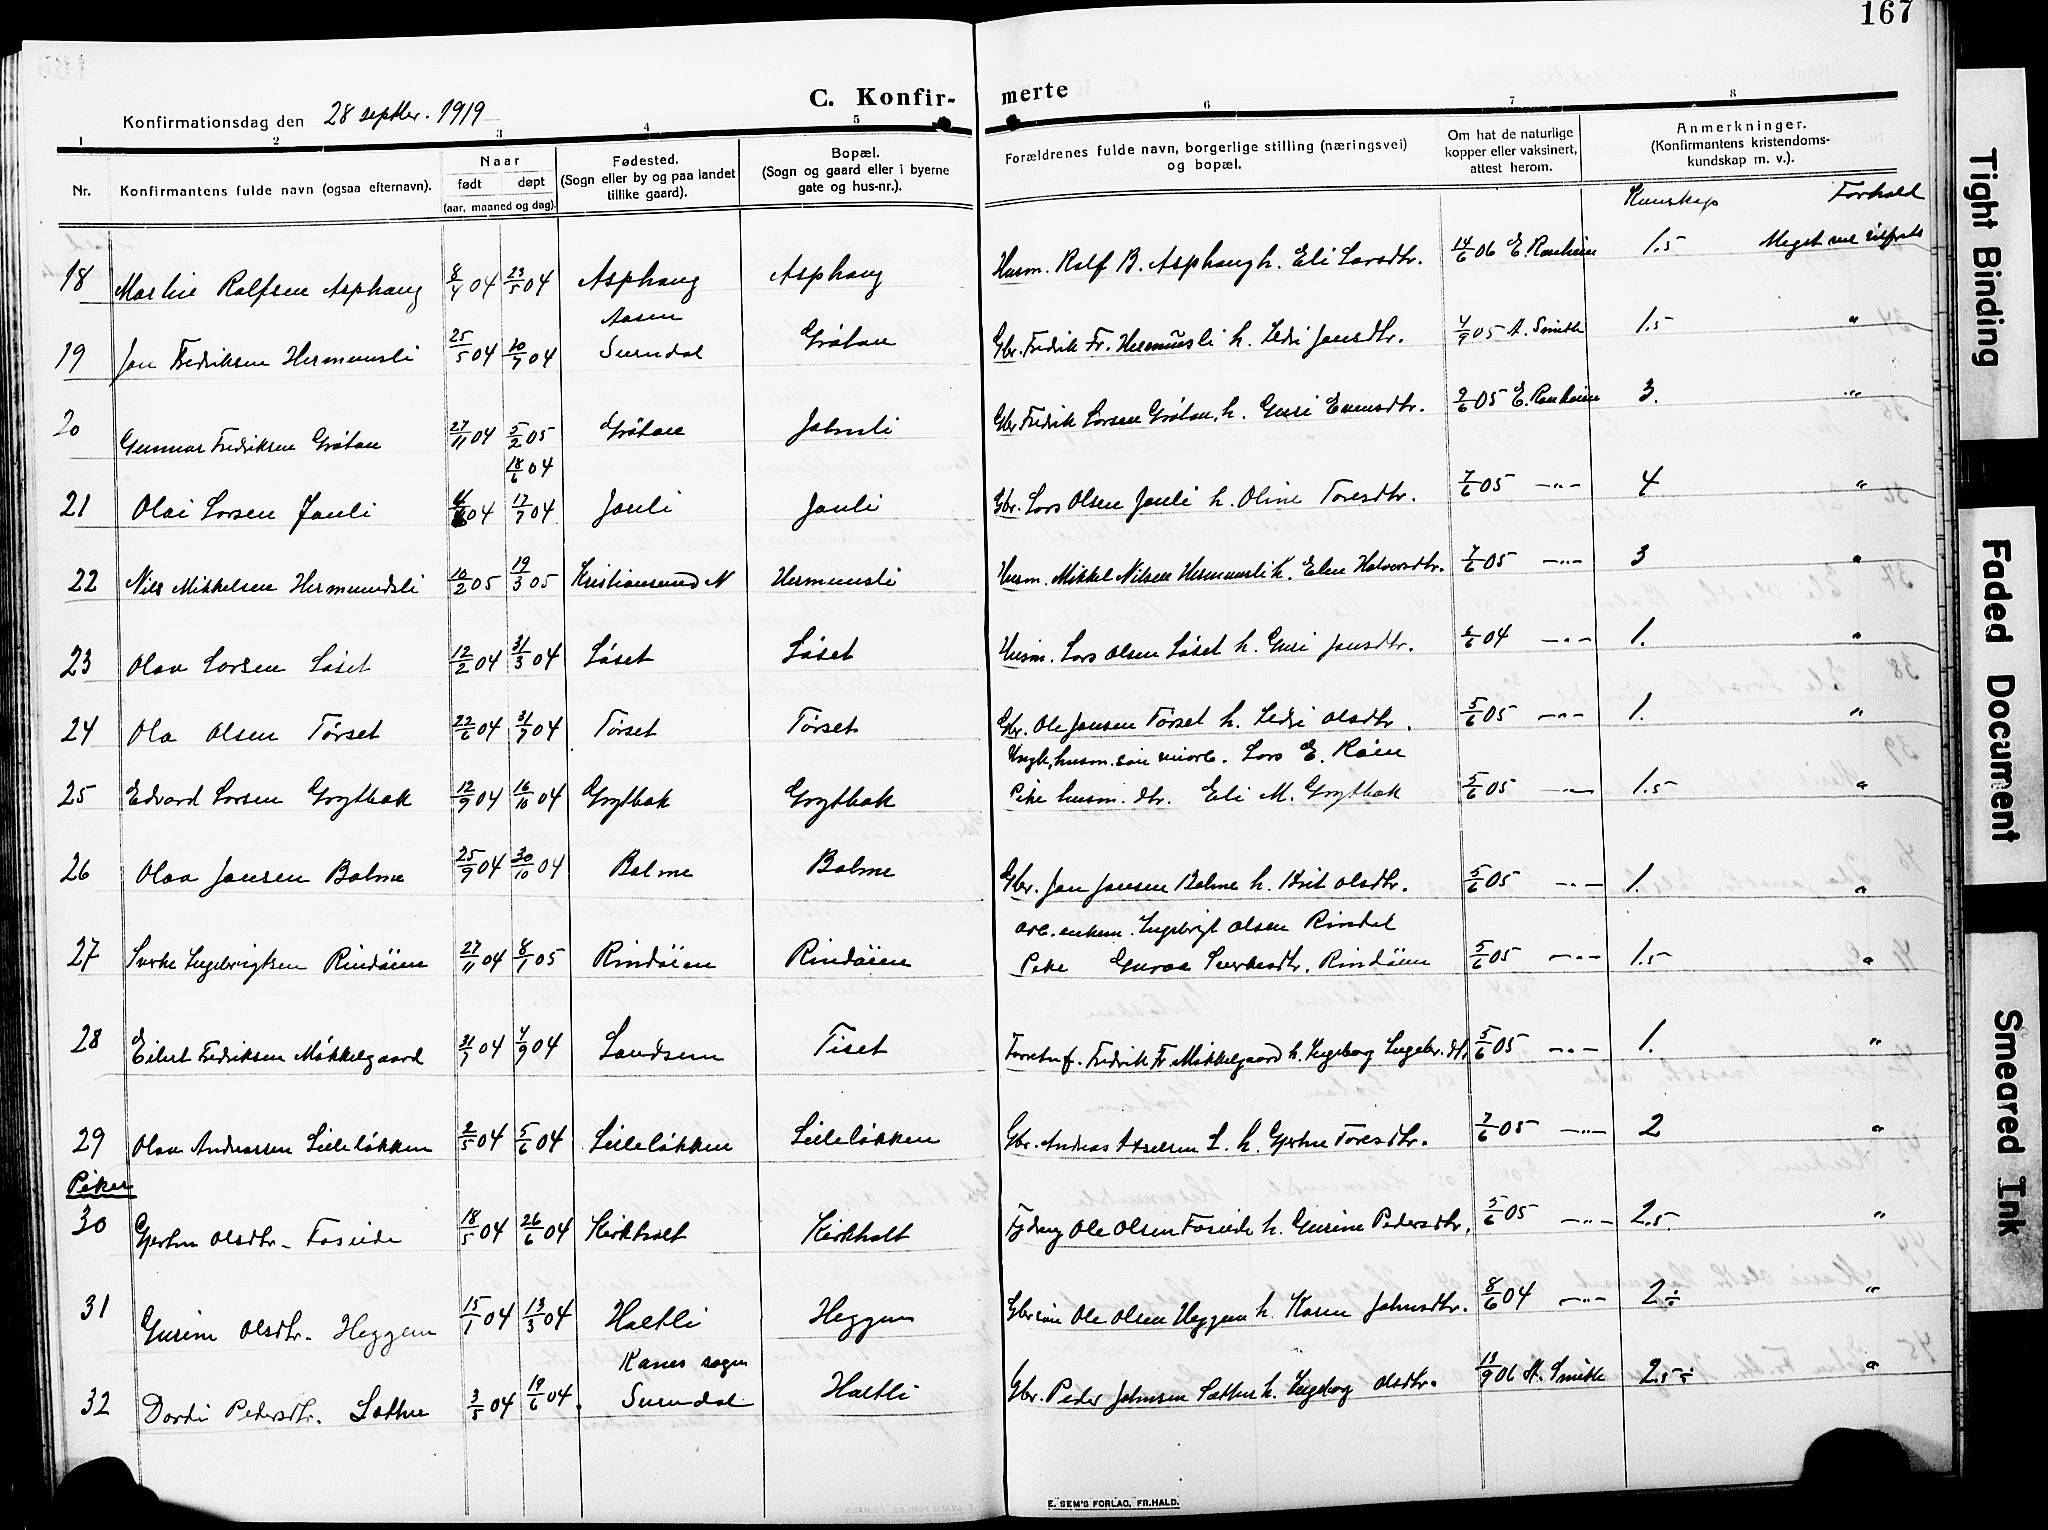 167
C. Konfir-
merte
Konfirmationsdag den 28 septber. 1919
1 2 3 4 5 6 7 8
Nr. Konfirmantens fulde navn (ogsaa efternavn). Naar født døpt (aar, maaned og dag). Fødested. (Sogn eller by og paa landet tillike gaard). Bopæl. (Sogn og gaard eller i byerne gate og hus-nr.). Forældrenes fulde navn, borgerlige stilling (næringsvei) og bopæl. Om hat de naturlige kopper eller vaksinert, attest herom. Anmerkninger. (Konfirmantens kristendoms-kundskap m. v.).
Kunskap Forhold
18 Rolfsen Asphaug 8/4 04 23/5 04 Asphaug Asphaug Husm. Rolf B. Asphaug h. Eli Larsdtr. 14/6 06 E. Ranheim 1.5 Meget vel
19 Jon Fredriksen Hermunsli 25/5 04 10/7 04 Aasen Surndal Grøtan Gbr. Fredrik Fr. Hermunsli h. Sedsi Jonsdtr. 4/9 05 A. Smith 1.5 "
20 Gunnar Fredriksen Grøtan 27/11 04 5/2 05 Grøtan Jahnsli Gbr. Fredrik Larsen Grøtan, h. Guri Evensdtr. 2/6 05 E. Ranheim 3. "
18/6 04
21 Olai Larsen Janli 04 17/7 04 Janli Janli Gbr. Lars Olsen Janli h. Oline Toresdtr. 7/6 05 -"- 4 "
22 Nils Mikkelsen Hermundsli 10/2 05 19/3 05 Kristiansund N Hermunsli Husm. Mikkel Nilsen Hermunsli h. Elen Halvorsdtr. 7/6 05 -"- 3 "
23 Olav Larsen Løset 12/2 04 31/3 04 Løset Løset Husm. Lars Olsen Løset h. Guri Jonsdtr. 04 -"- 1. "
24 Ola Olsen Tørset 22/6 04 31/7 04 Tørset Tørset Gbr. Ole Jonsen Tørset h. Sedsi Olsdtr. 5/6 05 -"- 1. "
Ungk. husm. søn Lars E. Røen
25 Edvard Larsen Grytbak 12/9 04 16/10 04 Grytbak Grytbak Pike husm. dtr. Eli M. Grytbak 5/6 05 -"- 1.5 "
26 Olav Jonsen Bolme 25/9 04 30/10 04 Bolme Bolme Gbr. Jon Jonsen Bolme h. Brit Olsdtr. 5/6 05 -"- 1. "
arb. enkem. Ingebrigt Olsen Rindal
27 Sverke Ingebrigtsen Rindøien 27/11 04 8/1 05 Rindøien Rindøien Pike Guroa Sverkesdtr. Rindøien 5/6 05 -"- 1.5 "
28 Eilert Fredriksen Møkkelgaard 31/7 04 4/9 04 Landsem Tiset Forretnf. Fredrik Fr. Møkkelgaard h. Ingeborg Ingebr. dt. 5/6 05 -"- 1. "
29 Olav Andreassen Lilleløkken 2/5 04 5/6 04 Lilleløkken Lilleløkken Gbr. Andreas Axelsen L. h. Gjertru Toresdtr. 7/6 05 -"- 2 "
Piker
30 Gjertru Olsdtr. Foseide 18/5 04 26/6 04 Kirkholt Kirkholt Ole Olsen Foseide h. Gurine Pedersdtr. 5/6 05 -"- 2.5. "
31 Gurine Olsdtr. Heggem 15/1 04 13/3 04 Holtli Heggem Gbr. søn Ole Olsen Heggem h. Karen Johnsdtr. 8/6 04 -"- 2÷ "
32 Dordi Pedersdtr. Sæther 3/5 04 19/6 04. Ranes sogn Surndal Holtli Gbr. Peder Johnsen Sæther h. Ingeborg Olsdtr. 13/9 06 A. Smith 2.5÷ "
E. SEM'S FORLAG, FR.HALD.
Tight Binding
Faded Document
Smeared Ink